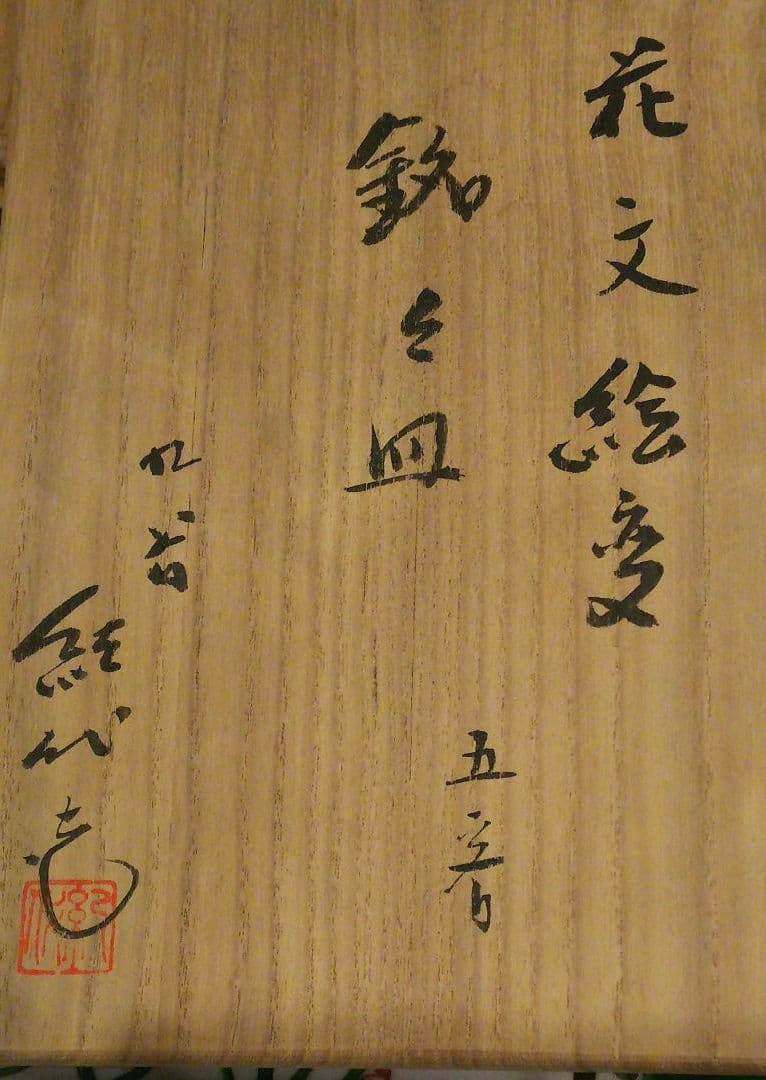 花文絵変
銘々皿
五客
九谷
代